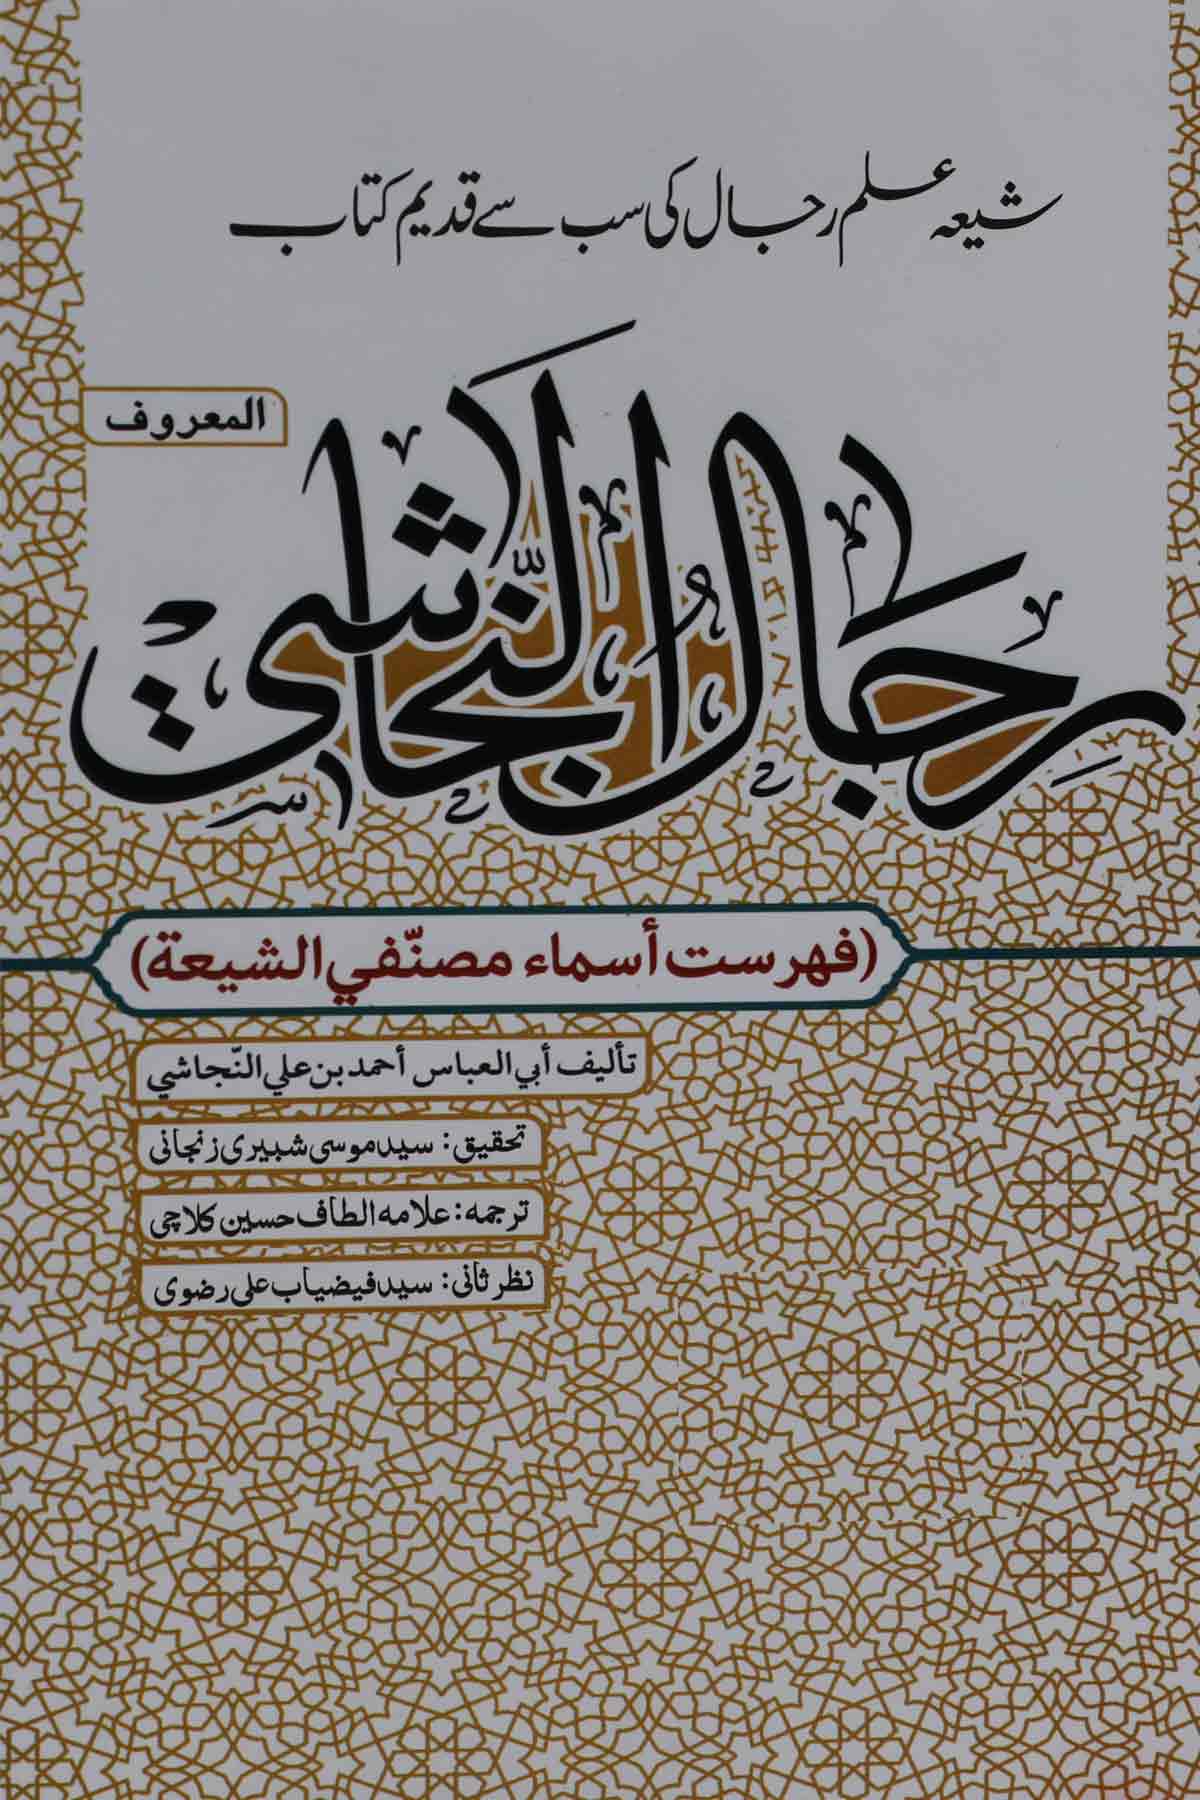 شیعہ علم رجال کی سب سے قدیم کتاب
المعروف
رِجَالُ النَّجَاشِي
(فهرست أسماء مصنّفي الشيعة)
تأليف أبي العباس أحمد بن علي النّجاشي
تحقیق: سید موسی شبیری زنجانی
ترجمه: علامه الطاف حسین کلاچی
نظر ثانی: سید فیضیاب علی رضوی